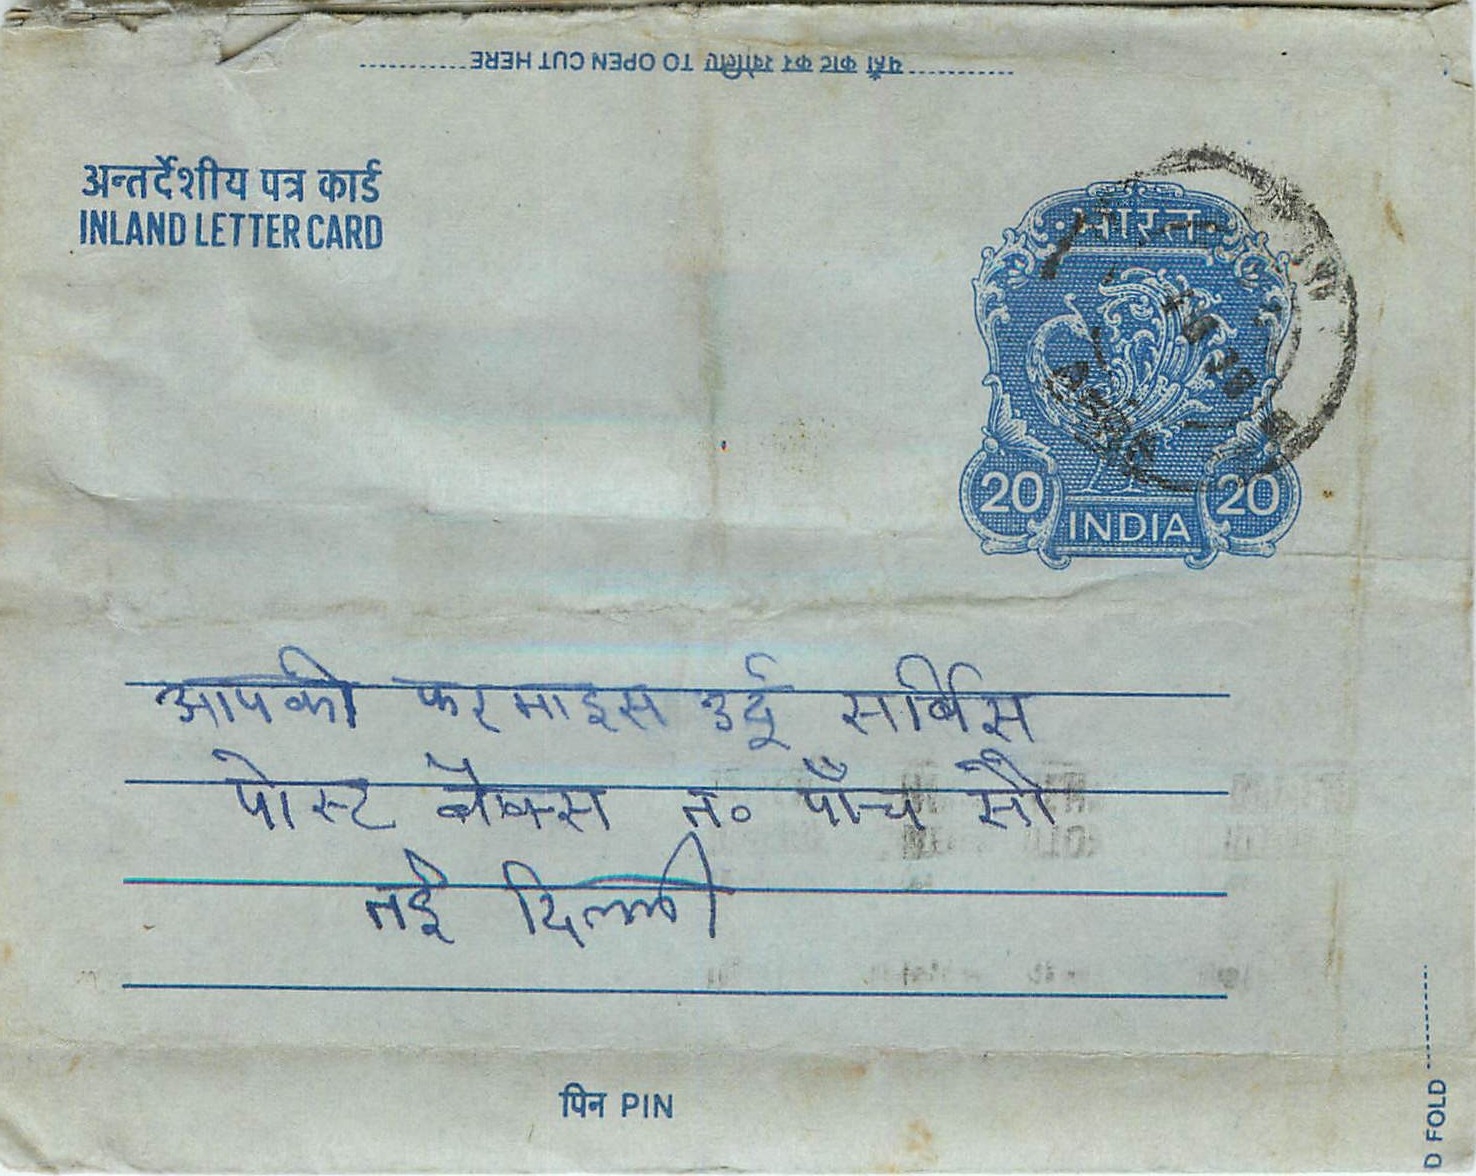 यहाँ काट कर खोलिए TO OPEN CUT HERE
अन्तर्देशीय पत्र कार्ड
INLAND LETTER CARD
भारत
20 20
INDIA
आपकी फरमाइस उर्दू सर्बिस
पोस्ट बॅाक्स न० पाँच सौ
नई दिल्ली
पिन PIN
D FOLD